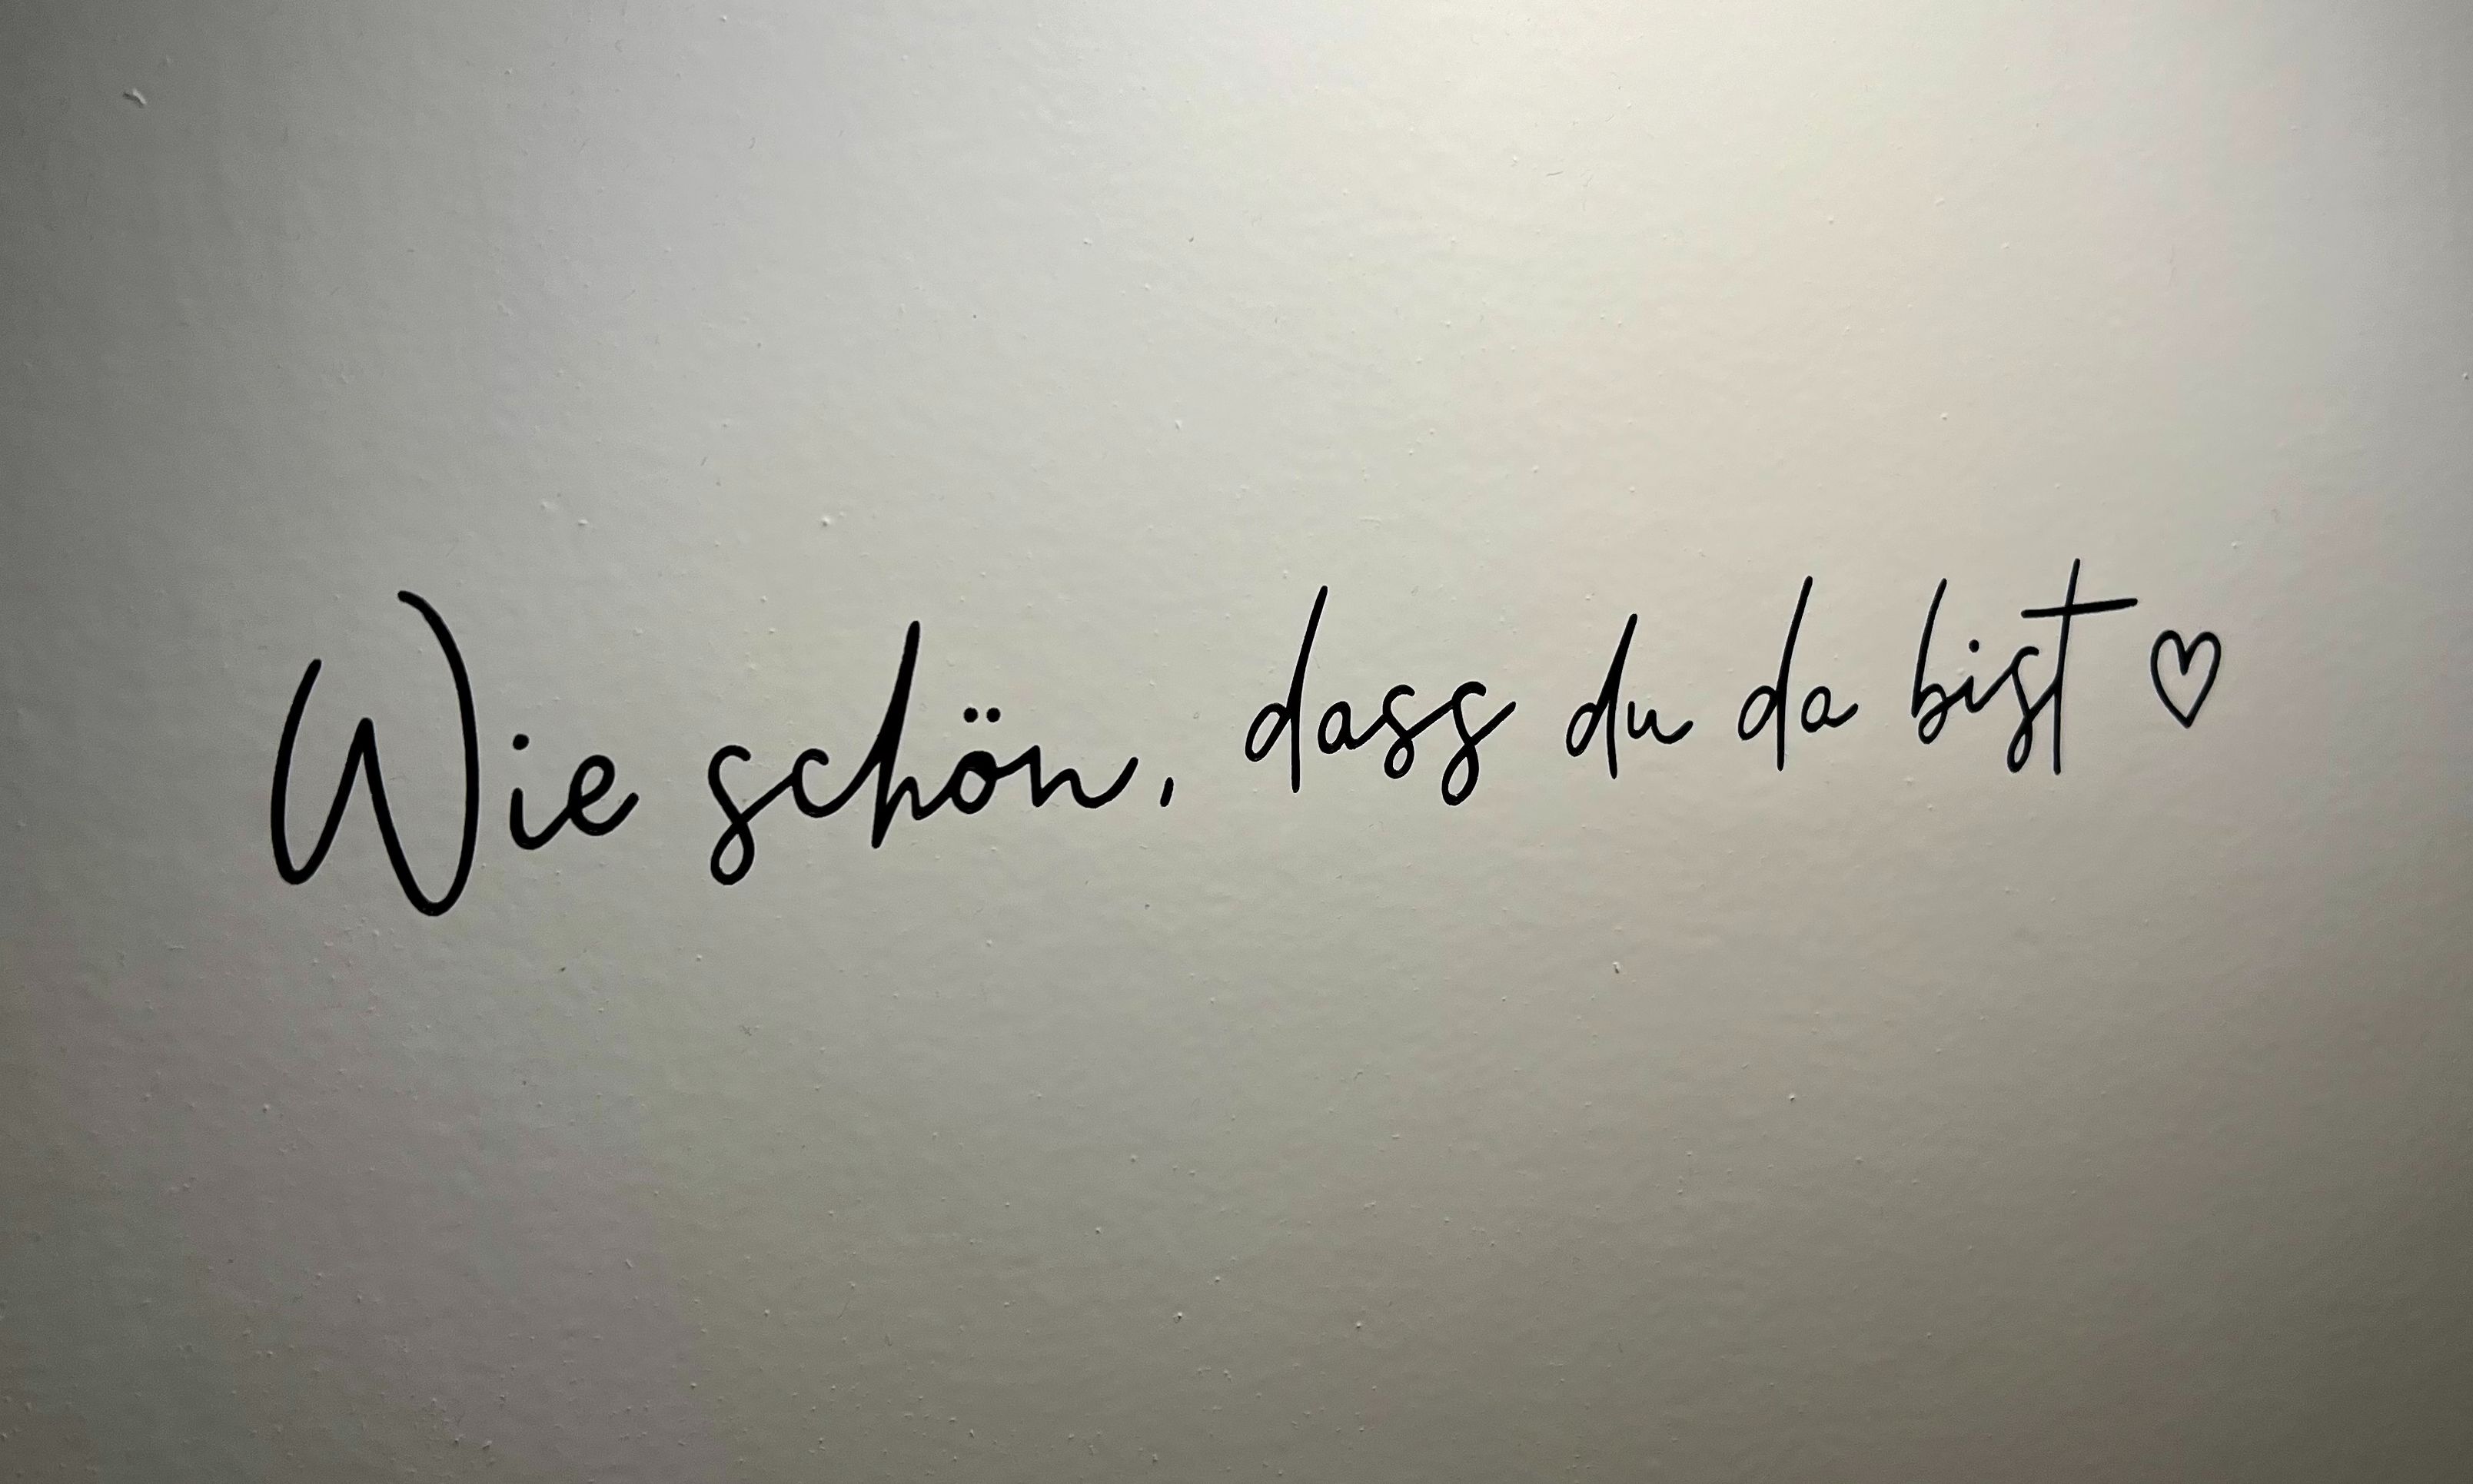 Wie schön, dass du da bist ♡